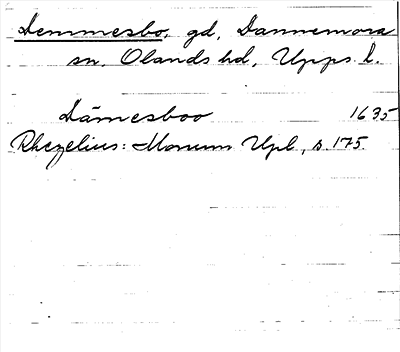 Demmesbo, gd, Dannemora
sn, Olands hd, Upps. l.
Dämesboo 1635
Rhezelius: Monum Upl, s. 175.